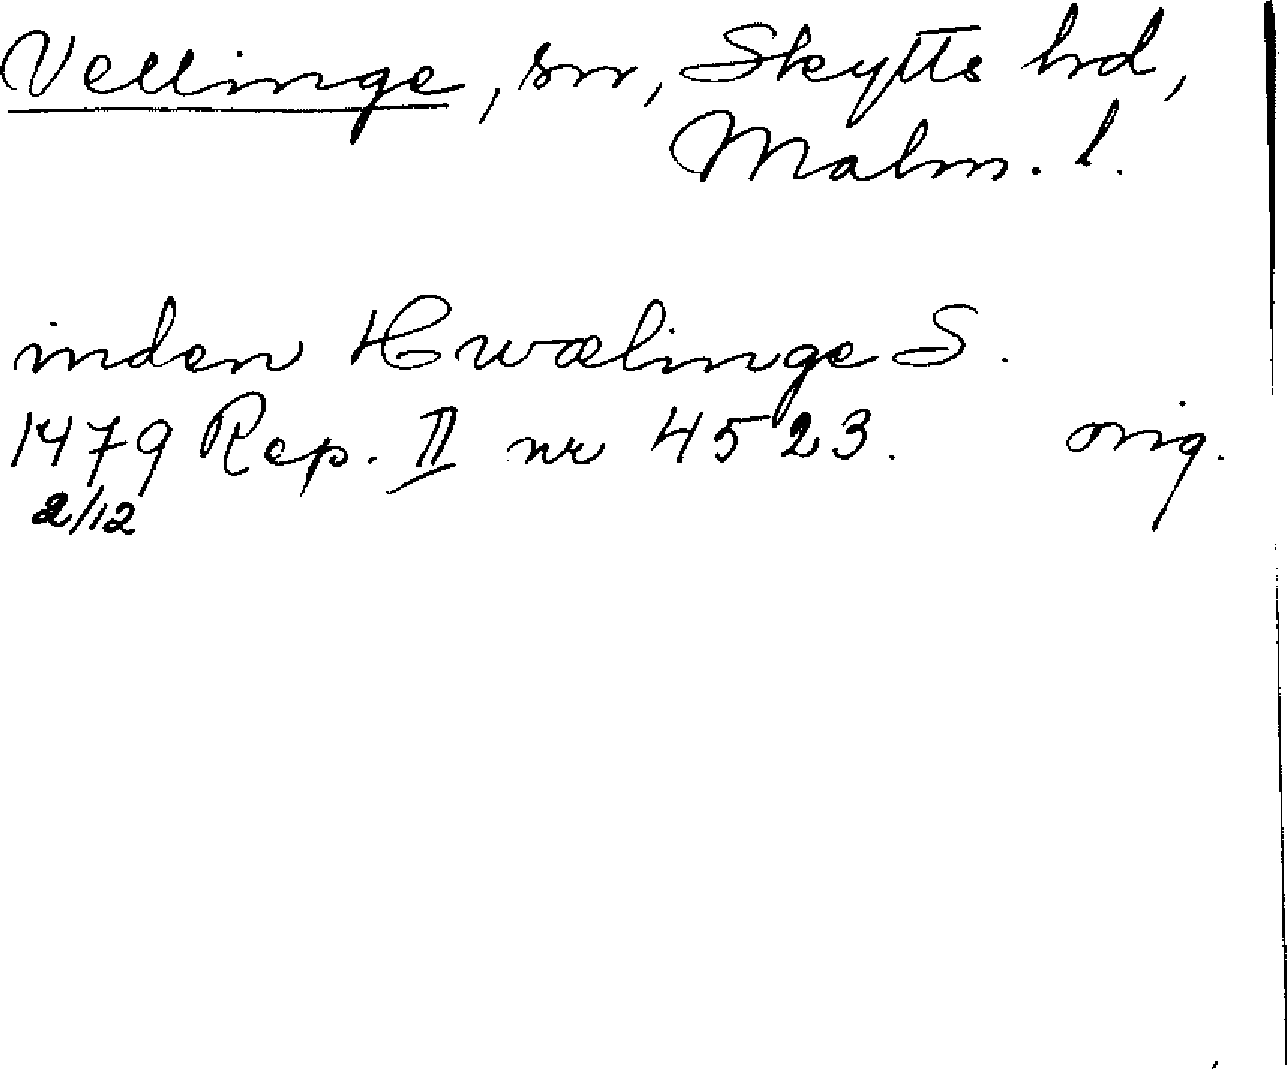 Vellinge, sn, Skytts hd,
Malm. l.
inden Hwælinge S.
1479 Rep. II nr 4523. orig.
2/12